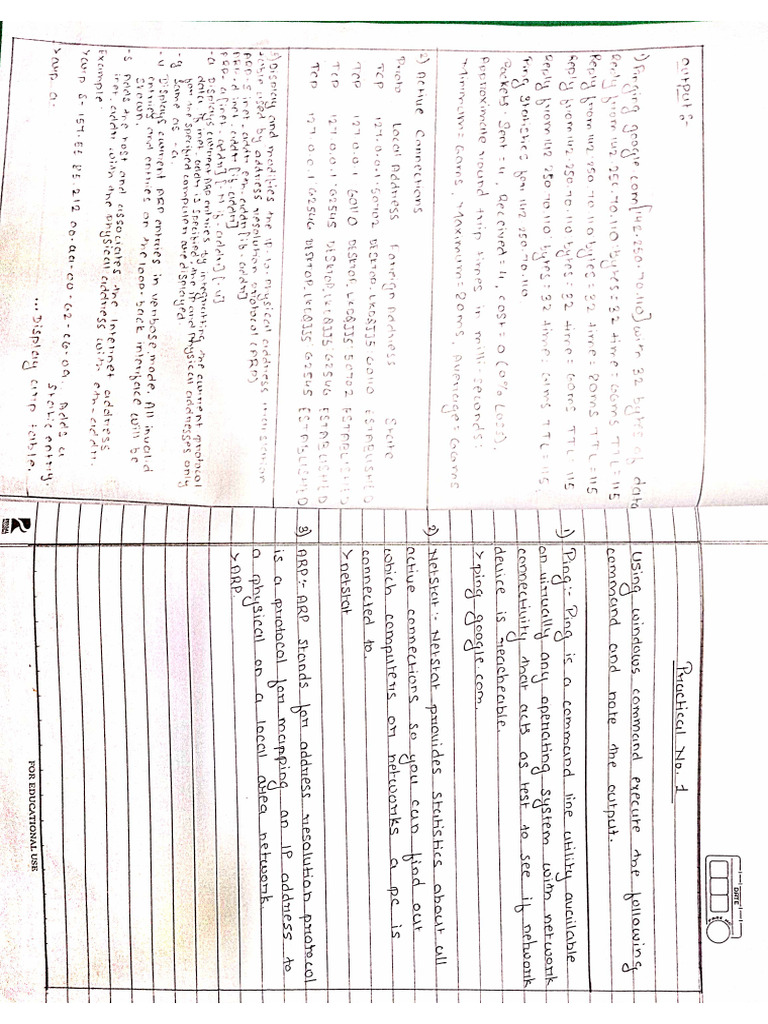 Output :-
1) Pinging google.com [142.250.70.110] with 32 bytes of data
Reply from 142.250.70.110 bytes = 32 time = 66ms TTL = 115
Reply from 142.250.70.110 bytes = 32 time = 20ms TTL = 115
Reply from 142.250.70.110 bytes = 32 time = 60ms TTL = 115
Reply from 142.250.70.110 bytes = 32 time = ms TTL = 115
Ping statistics for 142.250.70.110
Packets: Sent = 4, Received = 4, Lost = 0 (0% Loss),
Approximate round trip times in milli-seconds:
Minimum = ms, Maximum = 20ms, Average = ms
2) Active Connections
Proto Local Address Foreign Address State
TCP 127.0.0.1 50702 60110 ESTABLISHED
TCP 127.0.0.1 60110 50702 ESTABLISHED
TCP 127.0.0.1 62545 62546 ESTABLISHED
TCP 127.0.0.1 62546 62545 ESTABLISHED
3) Display and modifies the IP-to-Physical address translation
table used by address resolution protocol (ARP)
ARP -s inet_addr eth_addr [if_addr]
ARP -d inet_addr [if_addr]
ARP -a [inet_addr] [-N if_addr] [-v]
-a Displays current ARP entries by the current protocol
data. If inet_addr is specified the IP and Physical addresses only
for the specified computer are displayed.
-g Same as -a.
-v Displays current ARP entries in verbose mode. All invalid
entries and entries on the loop-back interface will be
shown.
-s Adds the host and associates the Internet address
inet_addr with the Physical address with eth_addr.
Example
>arp s- 157.55.85.212 00-aa-00-62-c6-09. Adds a
static entry.
>arp a. ... Display arp table.
DATE
Practical No. 1
Using windows command execute the following
command and note the output.
1) Ping :- Ping is a command line utility available
on virtually any operating system with network
connectivity that acts as test to see if network
device is reacheable.
>ping google.com.
2) Netstat :- Netstat provides statistics about all
active connections so you can find out
which computers or networks a pc is
connected to.
>netstat
3) ARP :- ARP stands for address resolution protocol
is a protocol for mapping an IP address to
a physical on a local area network.
>ARP.
FOR EDUCATIONAL USE